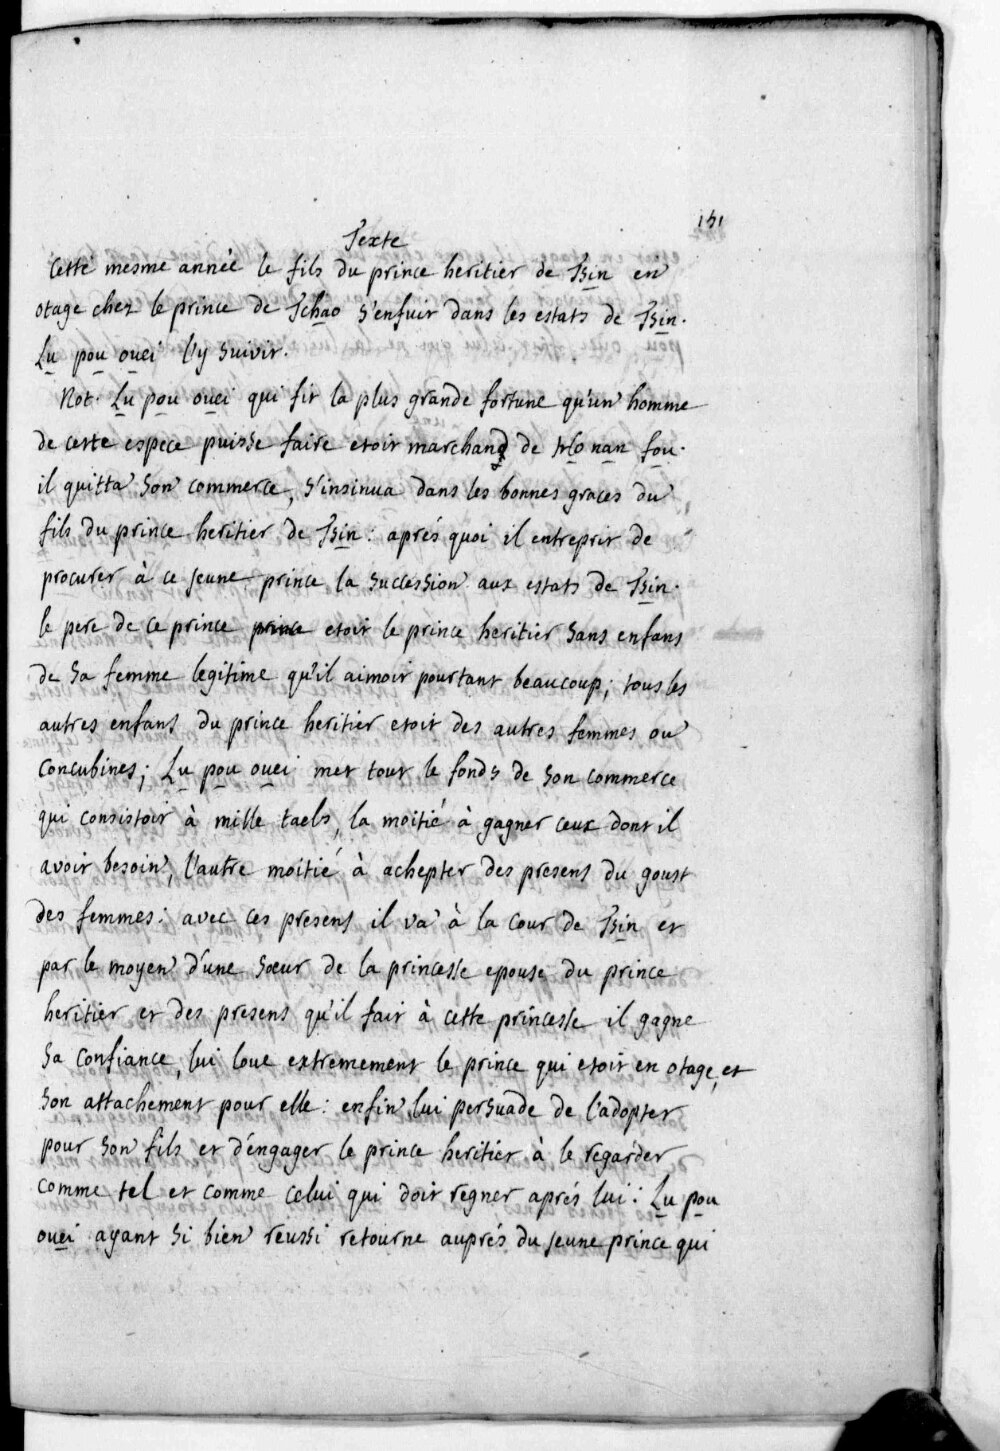 151
Texte
Cette mesme année le fils du prince heritier de Tsin en
otage chez le prince de Tchao s'enfuit dans les estats de Tsin.
Lu pou ouei l'y suivit.
Not. Lu pou ouei qui fit la plus grande fortune qu'un homme
de cette espece puisse faire etoit marchand de Ho nan fou.
il quitta son commerce, s'insinua dans les bonnes graces du
fils du prince heritier de Tsin : aprés quoi il entreprit de
procurer à ce jeune prince la succession aux estats de Tsin.
le pere de ce prince prince etoit le prince heritier sans enfans
de sa femme legitime qu'il aimoit pourtant beaucoup ; tous les
autres enfans du prince heritier etoit des autres femmes ou
concubines ; Lu pou ouei met tout le fonds de son commerce
qui consistoit à mille taels, la moitié à gagner ceux dont il
avoit besoin, l'autre moitié à achepter des presens du goust
des femmes : avec ces presens il va à la cour de Tsin et
par le moyen d'une sœur de la princesse epouse du prince
heritier et des presens qu'il fait à cette princesse il gagne
sa confiance, lui loue extremement le prince qui etoit en otage, et
son attachement pour elle : enfin lui persuade de l'adopter
pour son fils et d'engager le prince heritier à le regarder
comme tel et comme celui qui doit regner aprés lui : Lu pou
ouei ayant si bien reussi retourne auprés du jeune prince qui